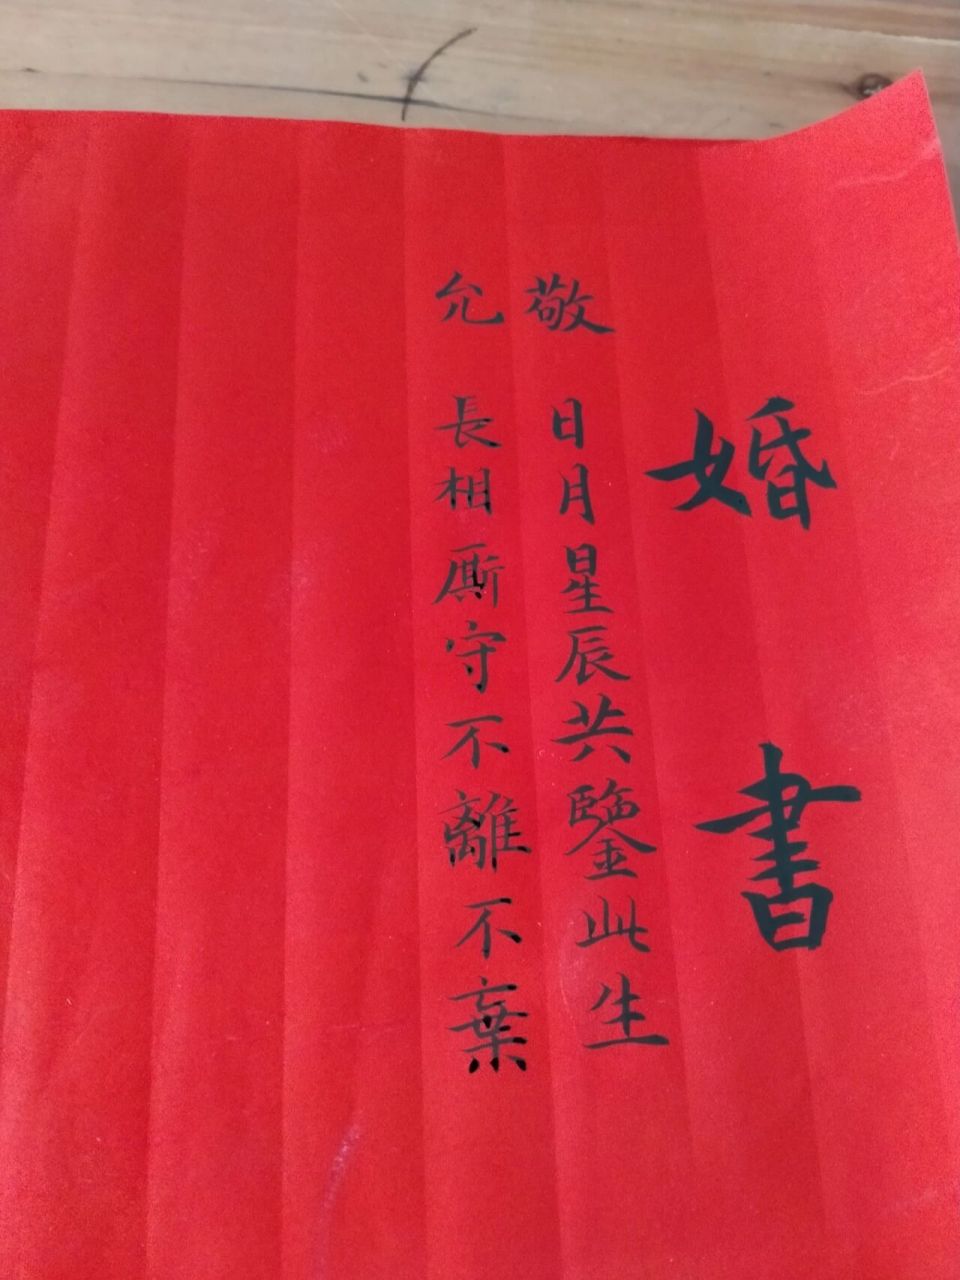 婚書
敬 日月星辰共鑒此生
允 長相厮守不離不棄